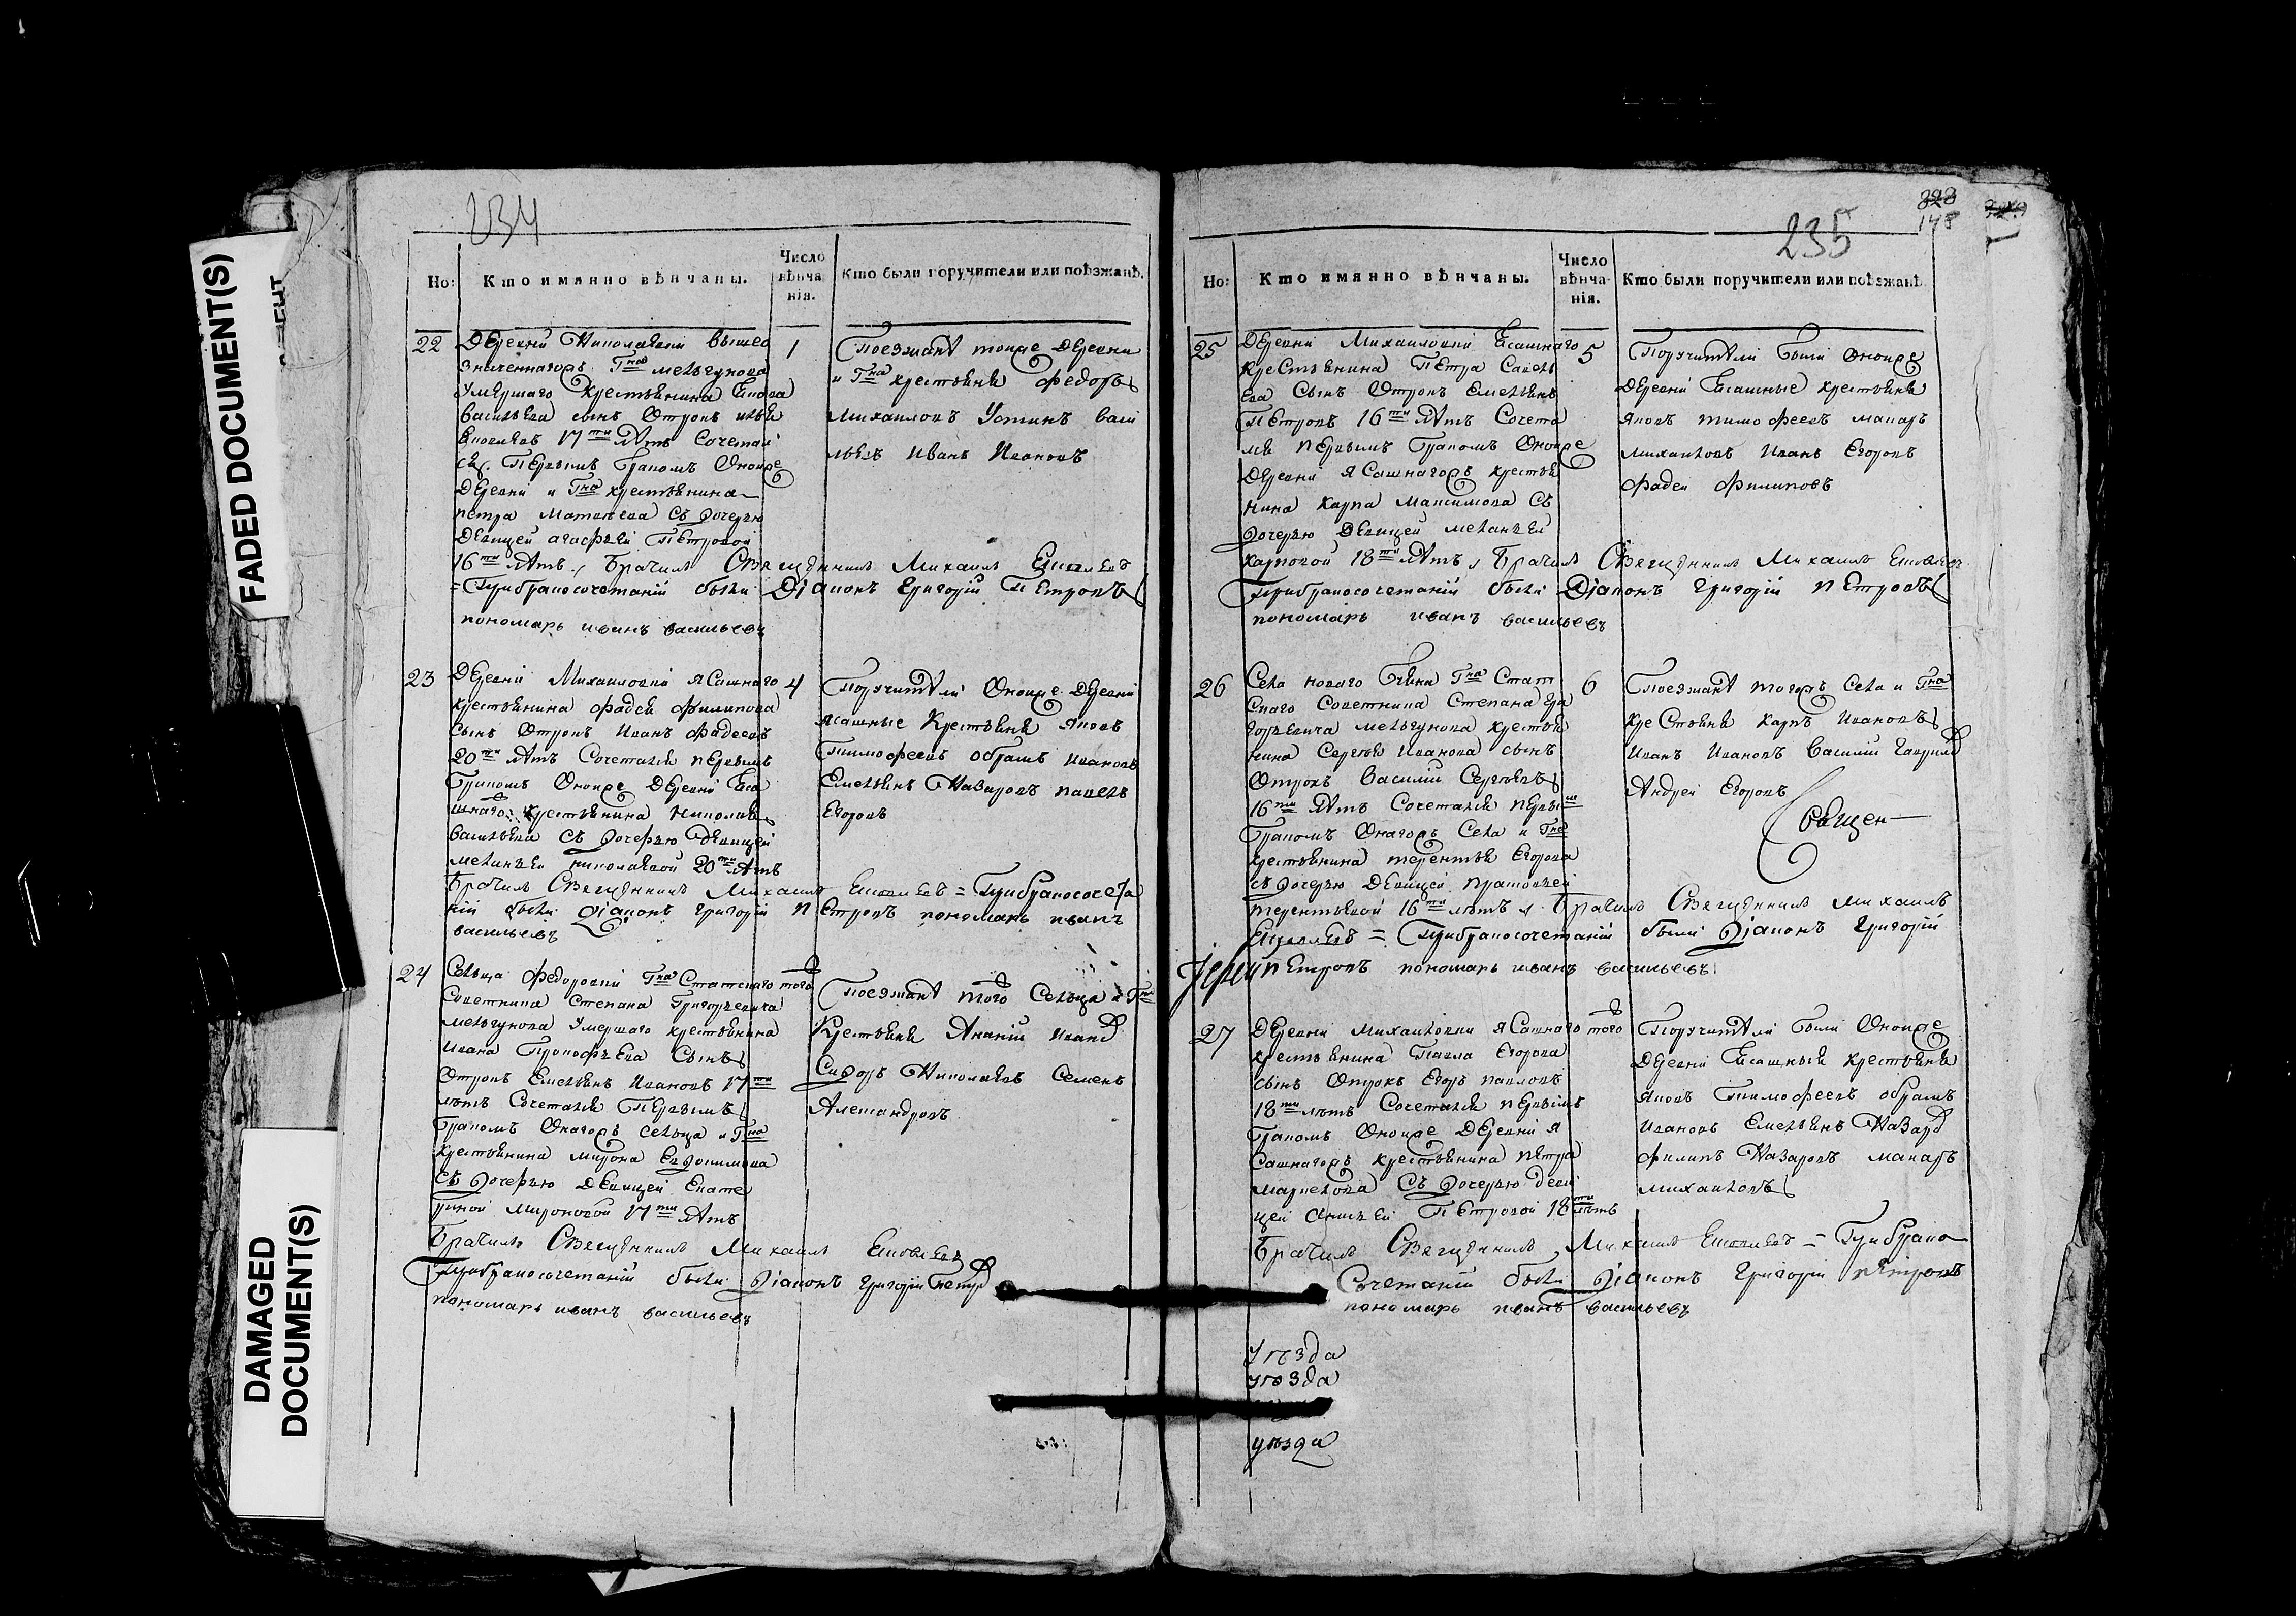 FADED DOCUMENT(S)
DAMAGED
DOCUMENT(S)
234
Но:
Кто имянно вѣнчаны.
Число
вѣнча-
нія.
Кто были поручители или поѣзжанѣ.
22
Деревни Николаевки вышео
значеннагожъ Гна Мельгунова
умершаго крестьянина
Васильева сынъ Отрокъ
17ти лѣтъ Сочетал
ся Первымъ Бракомъ Оноиже
Деревни и Гна крестьянина
Петра Матвеева съ дочерью
Девицей Агафьей Петровой
16ти лѣтъ Брачилъ Священникъ Михаилъ
Прибракосочетаній были Діаконъ Григорій Петровъ
пономарь иванъ васильевъ
1
Поезжанѣ тоиже Деревни
и Гна крестьяне Федоръ
Михаиловъ Устинъ Васи
льевъ Иванъ Ивановъ
23
Деревни Михаиловки Ясашнаго
крестьянина Фадея Филипова
сынъ Отрокъ Иванъ Фадеевъ
20ти лѣтъ Сочетался первымъ
Бракомъ Оноиже Деревни Яса
шнаго крестьянина Николая
Васильева съ дочерью Девицей
Меланьей Николаевой 20ти лѣтъ
Брачилъ Священникъ Михаилъ = Прибракосочета
ній были Діаконъ Григорій Петровъ пономарь иванъ
васильевъ
4
Поручители Оноиже Деревни
Ясашные Крестьяне Яковъ
Тимофеевъ Абрамъ Ивановъ
Емельянъ Назаровъ Павелъ
Егоровъ
24
Сельца Федоровки Гна Статскаго
Советника Степана Григорьевича
Мельгунова Умершаго крестьянина
Ивана Прокофьева Сынъ
Отрокъ Емельянъ Ивановъ 17ти
лѣтъ Сочетался Первымъ
Бракомъ Оногожъ сельца и Гна
Крестьянина Мирона Евдокимова
Съ дочерью Девицей Екате
риной Мироновой 17ти лѣтъ
Брачилъ Священникъ Михаилъ
Прибракосочетаній были Діаконъ Григорій Петр
пономарь иванъ васильевъ
того
Поезжанѣ того Сельца и Гна
Крестьяне Ананій Иван
Сидоръ Николаевъ Семенъ
Александровъ
235
328
148
Но:
Кто имянно вѣнчаны.
Число
вѣнча-
нія.
Кто были поручители или поѣзжанѣ.
25
Деревни Михаиловки Ясашнаго
крестьянина Петра Савель
ева Сынъ Отрокъ Емельянъ
Петровъ 16ти лѣтъ Сочета
лся первымъ Бракомъ Оноиже
Деревни Ясашнагожъ крестья
нина Карпа Максимова Съ
дочерью Девицей Меланьей
Карповой 18ти лѣтъ Брачилъ Священникъ Михаилъ
Прибракосочетаній были Діаконъ Григорій Петровъ
пономарь иванъ васильевъ
5
Поручители были Оноиже
Деревни Ясашные крестьяне
Яковъ Тимофеевъ Макаръ
Михаиловъ Иванъ Егоровъ
Фадей Филиповъ
26
Села Новаго Гна Стат
скаго Советника Степана Гри
горьевича Мельгунова крестья
нина Сергѣя Иванова сынъ
Отрокъ Василій Сергѣевъ
16ти лѣтъ Сочетался первы
Бракомъ Оногожъ Села и Гна
Крестьянина Терентья Егорова
съ дочерью Девицей Прасковьей
Терентьевой 16ти лѣтъ Брачилъ Священникъ Михаилъ
= Прибракосочетаній были Діаконъ Григорій
Іерей Петровъ пономарь иванъ васильевъ
6
Поезжанѣ тогожъ Села и Гна
крестьяне Карпъ Ивановъ
Иванъ Ивановъ Василій Гаврил
Андрей Егоровъ
Священ
27
Деревни Михаиловки Ясашнаго
крестьянина Павла Егорова
сынъ Отрокъ Егоръ Павловъ
18ти лѣтъ Сочетался первымъ
Бракомъ Оноиже Деревни Я
сашнагожъ крестьянина Петра
Маркелова Съ дочерью деви
цей Анисьей Петровой 18ти лѣтъ
Брачилъ Священникъ Михаилъ = Прибрако
Сочетаній были Діаконъ Григорій Петровъ
пономарь иванъ васильевъ
того
Поручители были Оноиже
Деревни Ясашныя крестьяне
Яковъ Тимофеевъ Абрамъ
Ивановъ Емельянъ Назар
Филипъ Назаровъ Макаръ
Михаиловъ
уѣзда
уѣзда
уѣзда